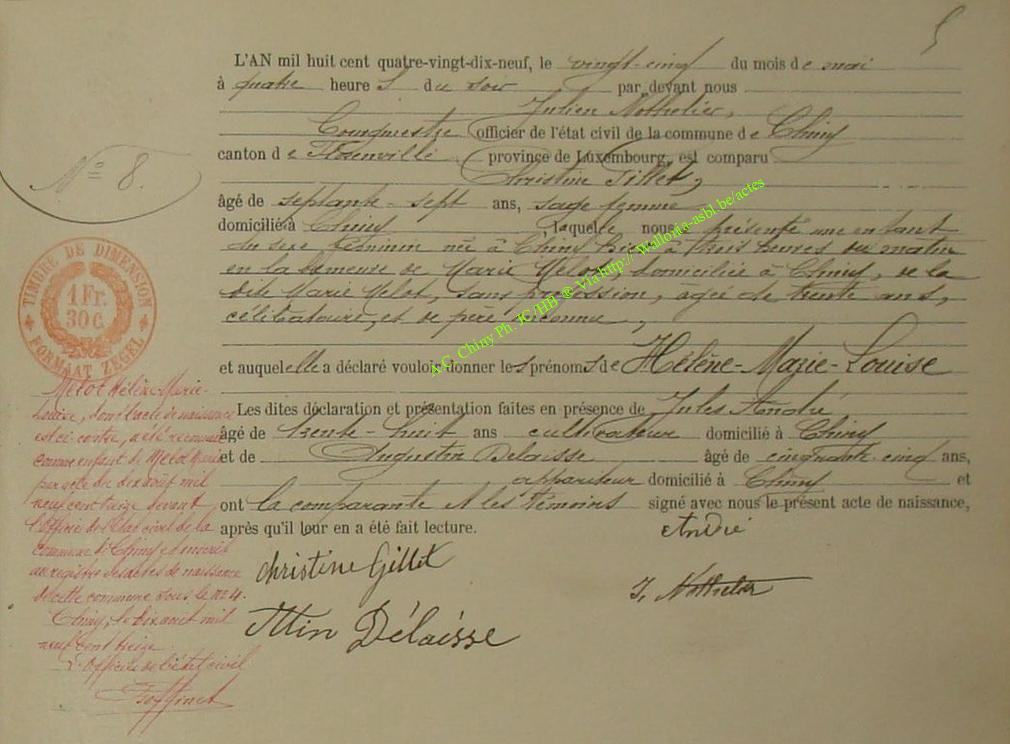 5
L'AN mil huit cent quatre-vingt-dix-neuf, le vingt-cinq du mois de mai
à quatre heures du soir par devant nous
Julien Nothelier,
Bourgmestre officier de l'état civil de la commune de Chiny
canton de Florenville province de Luxembourg, est comparu
Christine Gillet,
âgé de septante-sept ans, sage femme
domicilié à Chiny laquelle nous a présenté une enfant
du sexe féminin née à Chiny hier à trois heures du matin
en la demeure de Marie Melot, domiciliée à Chiny, de la
dite Marie Melot, sans profession, âgée de trente ans,
célibataire, et de père inconnu,
et auquel elle a déclaré vouloir donner les prénoms de Hélène-Marie-Louise
Les dites déclaration et présentation faites en présence de Jules André
âgé de trente-huit ans cultivateur domicilié à Chiny
et de Augustin Delaisse âgé de cinquante-cinq ans,
appariteur domicilié à Chiny et
ont la comparante et les témoins signé avec nous le présent acte de naissance,
après qu'il leur en a été fait lecture.
André
Christine Gillet
J. Nothelier
Délaisse
N° 8.
TIMBRE DE DIMENSION
1 Fr.
30 C.
FORMAAT ZEGEL
Melot Hélène-Marie-
Louise, dont l'acte de naissance
est ci contre, a été reconnue
comme enfant de Melot Marie
par acte du dix août mil
neuf cent treize devant
l'Officier de l'état civil de la
commune de Chiny et inscrit
au registre des actes de naissance
de cette commune sous le n° 4.
Chiny, le dix août mil
neuf cent treize.
L'Officier de l'état civil
A.C. Chiny Ph. JC/HB @ Via http:// Wallonia-asbl.be/actes